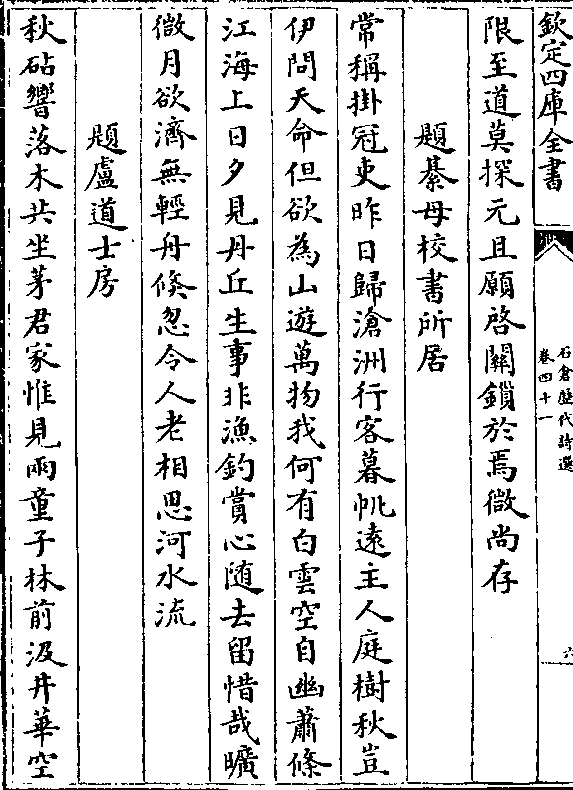 欽定四庫全書
石倉歷代詩選
卷四十一
六
限至道莫探元且願啓關鎖於焉微尚存
題綦母校書所居
常稱掛冠吏昨日歸滄洲行客暮帆遠主人庭樹秋豈
伊問天命但欲為山遊萬物我何有白雲空自幽蕭條
江海上日夕見丹丘生事非漁釣賞心隨去留惜哉曠
微月欲濟無輕舟倐忽令人老相思河水流
題盧道士房
秋砧響落木共坐茅君家惟見兩童子林前汲井華空